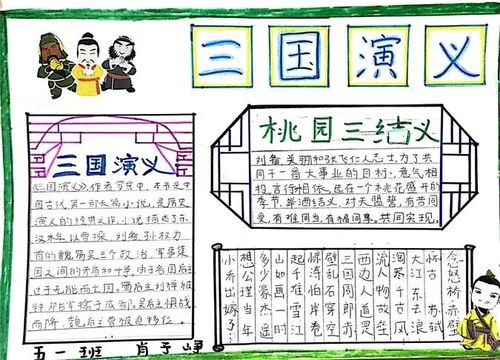 三国演义
桃园三结义
刘备、关羽和张飞仁人志士,为了共
同干一番大事业的目标,意气相
投,言行相依,选在一个桃花盛开的
季节,举酒结义,对天盟誓,有苦同
受,有难同当,有福同享,共同实现。
三国演义
《三国演义》作者罗贯中,本书是中
国古代第一部长篇小说,是历史
演义的经典之作。小说描述了东
汉末年,以曹操、刘备、孙权为
首的魏蜀吴三个政治、军事集
团之间的矛盾和斗争。
念怒桥赤壁
怀古 苏轼
大江东去浪
淘尽千古风
流人物故垒
西边人道是
三国周郎赤
壁乱石穿空
惊涛拍岸卷
起千堆雪江
山如画一时
多少豪杰遥
想公瑾当年
小乔出嫁了
五一班 肖子峰